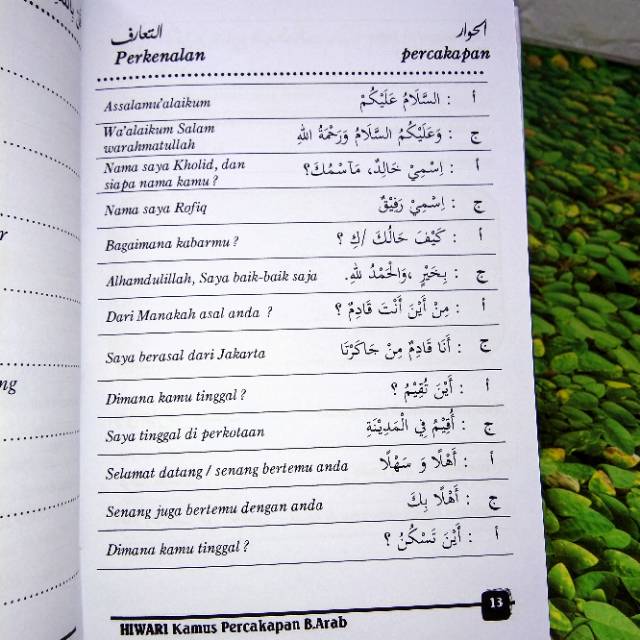 التعارف
الحوار
Perkenalan
percakapan
Assalamu'alaikum
أ : السَّلَامُ عَلَيْكُمْ
Wa'alaikum Salam
warahmatullah
ج : وَعَلَيْكُمُ السَّلَامُ وَرَحْمَةُ اللهِ
Nama saya Kholid, dan
siapa nama kamu ?
أ : اِسْمِيْ خَالِدٌ، مَآسْمُكَ؟
Nama saya Rofiq
ج : اِسْمِيْ رَفِيْقٌ
Bagaimana kabarmu ?
أ : كَيْفَ حَالُكَ /كِ ؟
Alhamdulillah, Saya baik-baik saja
ج : بِخَيْرٍ ،وَالْحَمْدُ لِلهِ.
Dari Manakah asal anda ?
أ : مِنْ أَيْنَ أَنْتَ قَادِمٌ ؟
Saya berasal dari Jakarta
ج : أَنَا قَادِمٌ مِنْ جَاكَرْتَا
Dimana kamu tinggal ?
أ : أَيْنَ تُقِيْمُ ؟
Saya tinggal di perkotaan
ج : أُقِيْمُ فِي الْمَدِيْنَةِ
Selamat datang / senang bertemu anda
أ : أَهْلًا وَ سَهْلًا
Senang juga bertemu dengan anda
ج : أَهْلًا بِكَ
Dimana kamu tinggal ?
أ : أَيْنَ تَسْكُنُ ؟
HIWARI Kamus Percakapan B.Arab
13